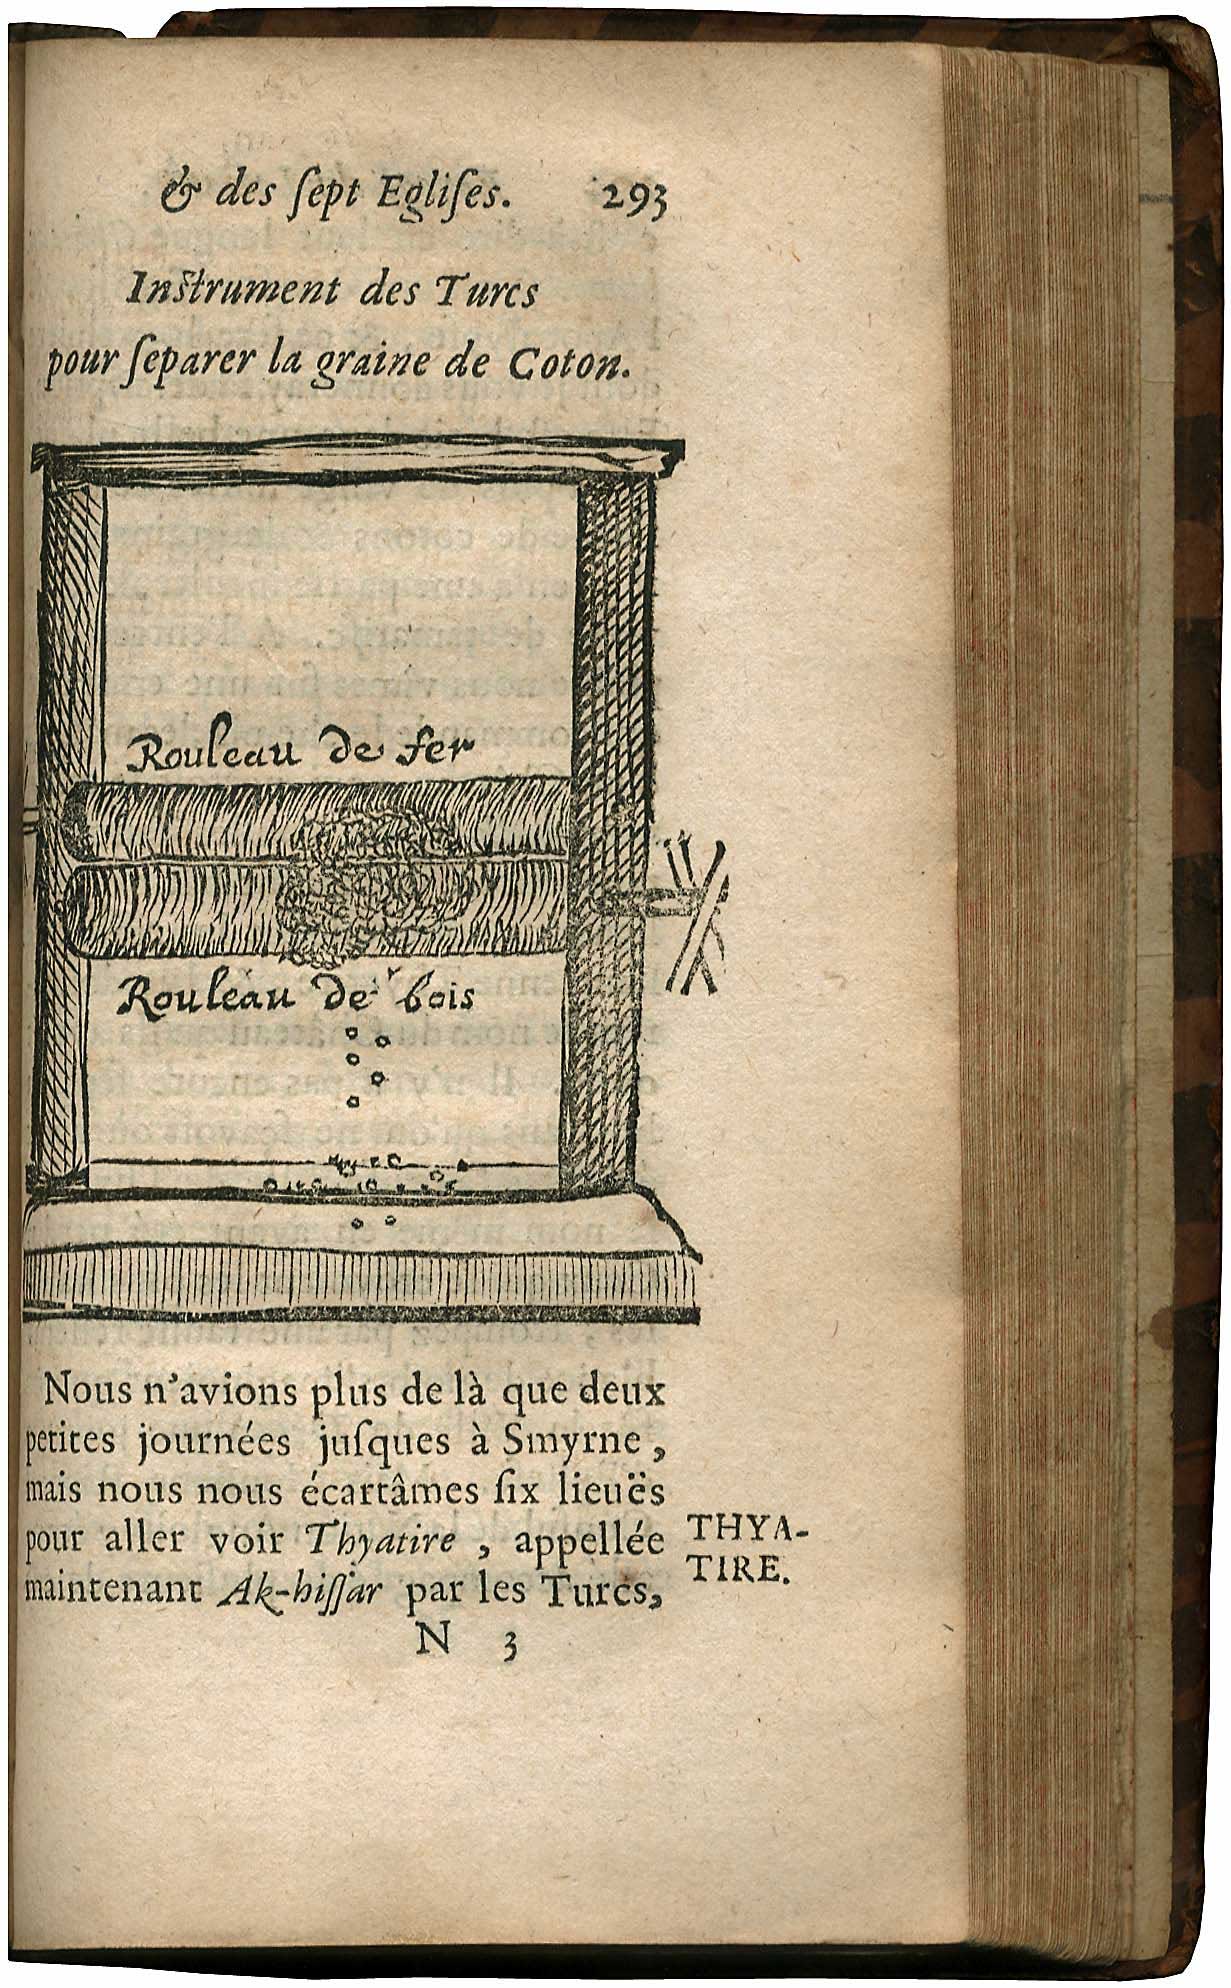 & des ſept Egliſes. 293
Inſtrument des Turcs
pour ſeparer la graine de Coton.
Rouleau de fer
Rouleau de bois
Nous n'avions plus de là que deux
petites journées juſques à Smyrne,
mais nous nous écartâmes ſix lieuës
pour aller voir Thyatire, appellée
maintenant Ak-hiſſar par les Turcs,
THYA-
TIRE.
N 3